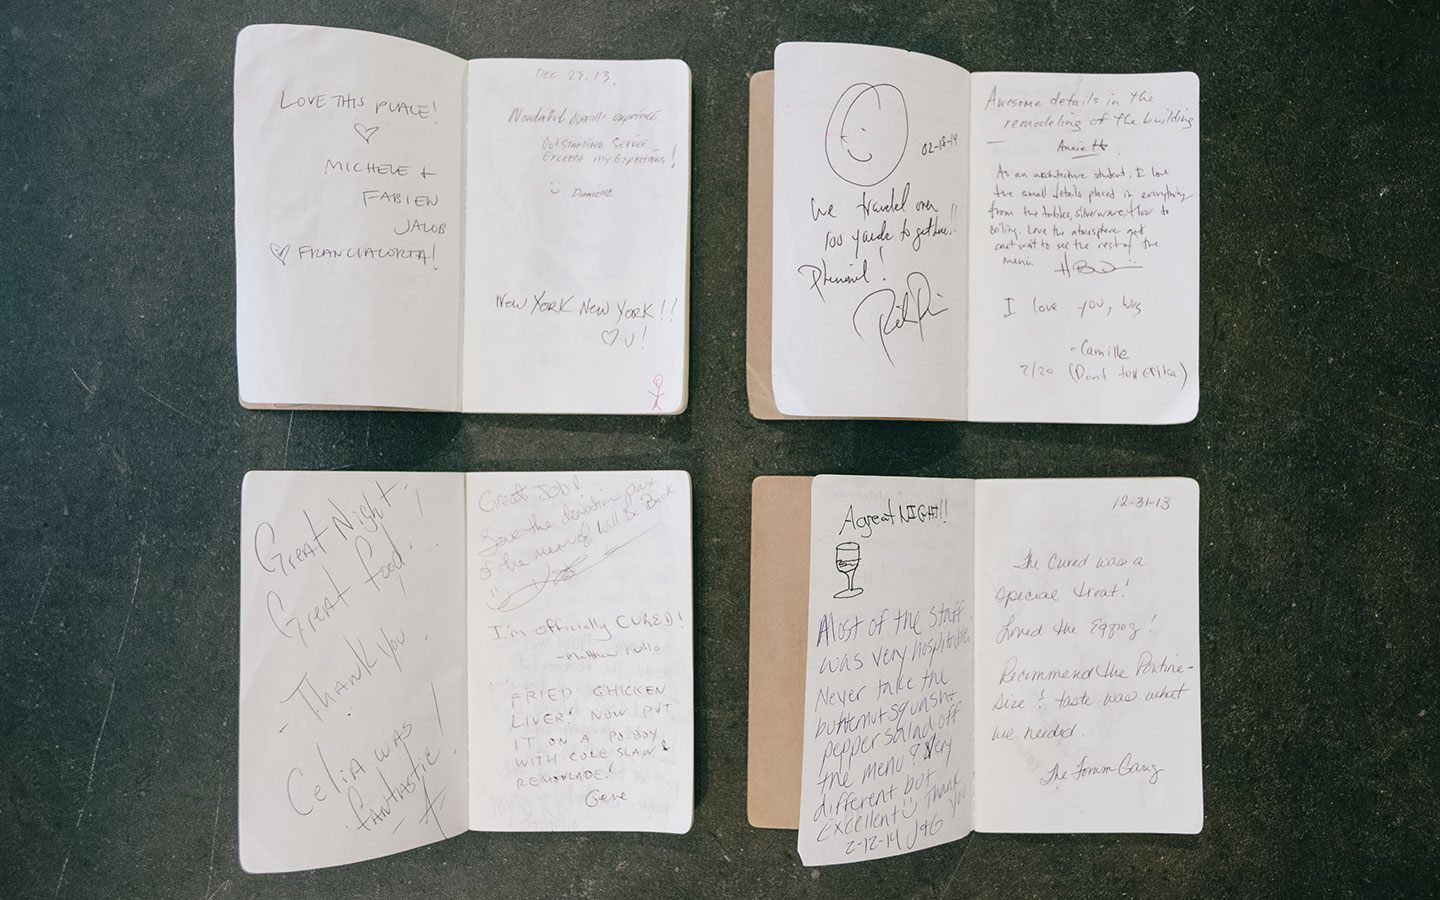 LOVE THIS PLACE!
♡
MICHELE +
FABIEN
JACOB
♡ FRANCIACORTA!
DEC. 27. 13.
Wonderful overall experience.
OUTSTANDING SERVICE
EXCEEDE MY EXPECTIONS!
Danielle
NEW YORK NEW YORK!!
♡ U!
02-18-14
We traveled over
100 yards to get here!!
Phenomenal!
Awesome details in the
remodeling of the building
Annie H
As an architecture student, I love
the small details placed in everything
from the tables, silverware, floor to
ceiling. Love the atmosphere and
cant wait to see the rest of the
menu.
I love you,
- Camille
2/20 (Dont tell Erika)
Great Night!
Great food!
- Thank you.
Celia was
fantastic!
Great Job!
Save the donation
of the menu & Will Be Back
I'm officially CURED!
- Matthew
FRIED CHICKEN
LIVER! NOW PUT
IT ON A PO-BOY
WITH COLE SLAW &
REMOULADE!
Gene
A great NIGHT!!
Most of the staff
was very hospitable.
Never take the
butternut squash +
pepper salad off
the menu! Very
different but
Excellent! Thank You
2-12-14 J+G
12-31-13
The Cured was a
special treat!
Loved the Eggnog!
Recommend the Poutine -
size & taste was what
we needed.
The Forum Gang